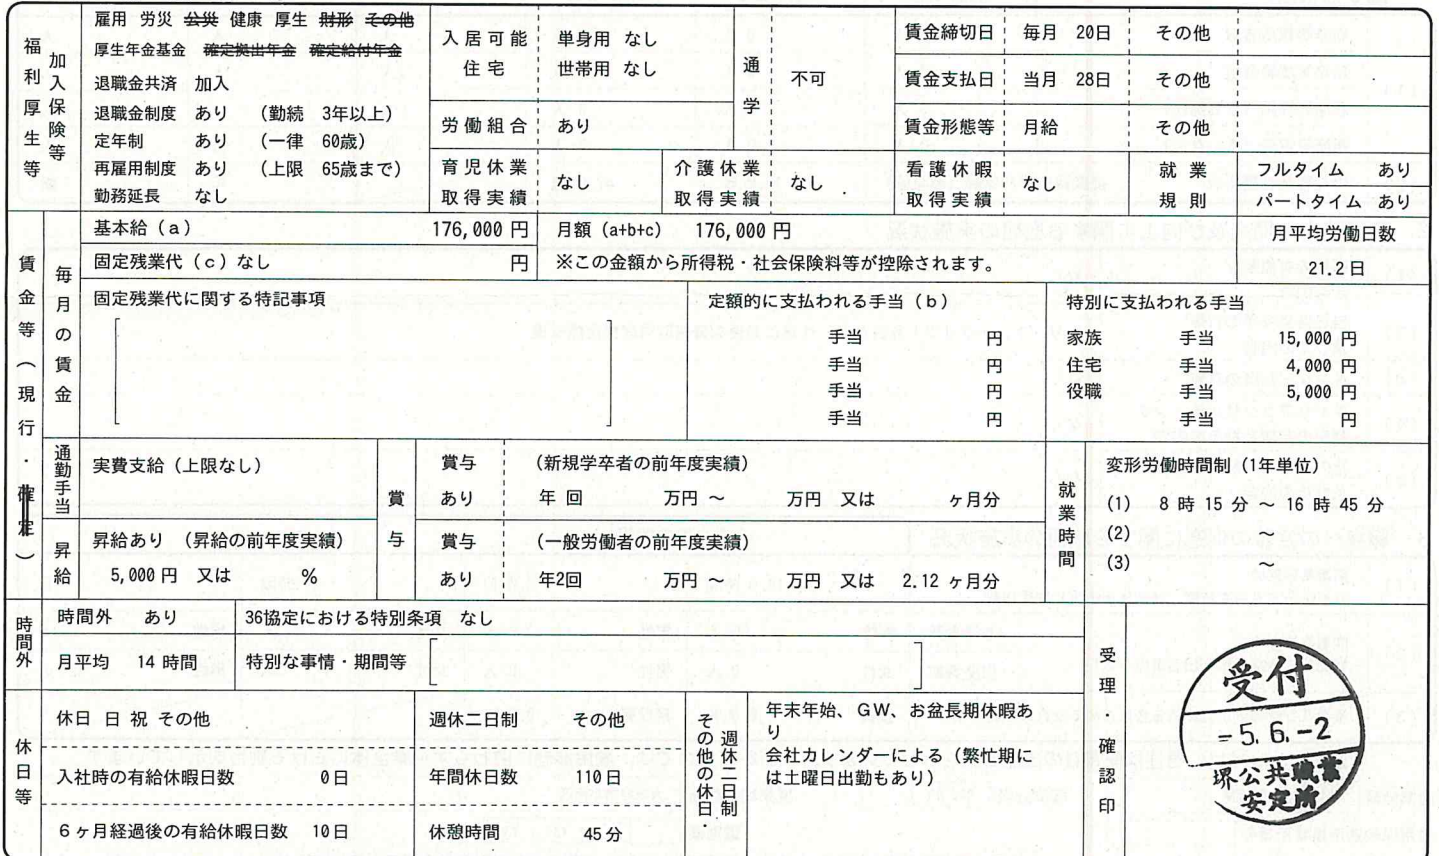 福利厚生等
加入保険等
雇用 労災 公災 健康 厚生 財形 その他
厚生年金基金 確定拠出年金 確定給付年金
退職金共済 加入
退職金制度 あり （勤続 3年以上）
定年制 あり （一律 60歳）
再雇用制度 あり （上限 65歳まで）
勤務延長 なし
入居可能住宅
単身用 なし
世帯用 なし
労働組合 あり
通学
不可
賃金締切日 毎月 20日 その他
賃金支払日 当月 28日 その他
賃金形態等 月給 その他
育児休業
取得実績
なし
介護休業
取得実績
なし
看護休暇
取得実績
なし
就業
規則
フルタイム あり
パートタイム あり
賃金等（現行・確定）
毎月の賃金
基本給（a） 176,000 円
月額（a+b+c） 176,000 円
固定残業代（c）なし 円
※この金額から所得税・社会保険料等が控除されます。
月平均労働日数
21.2日
固定残業代に関する特記事項
定額的に支払われる手当（b）
手当 円
手当 円
手当 円
手当 円
特別に支払われる手当
家族 手当 15,000 円
住宅 手当 4,000 円
役職 手当 5,000 円
手当 円
通勤手当
実費支給（上限なし）
昇給
昇給あり （昇給の前年度実績）
5,000 円 又は %
賞与
賞与 （新規学卒者の前年度実績）
あり 年 回 万円 ～ 万円 又は ヶ月分
賞与 （一般労働者の前年度実績）
あり 年2回 万円 ～ 万円 又は 2.12 ヶ月分
就業時間
変形労働時間制（1年単位）
(1) 8 時 15 分 ～ 16 時 45 分
(2) ～
(3) ～
時間外
時間外 あり
36協定における特別条項 なし
月平均 14 時間
特別な事情・期間等
休日等
休日 日 祝 その他
入社時の有給休暇日数 0日
6ヶ月経過後の有給休暇日数 10日
週休二日制 その他
年間休日数 110日
休憩時間 45分
週休二日制
その他の休日・
年末年始、GW、お盆長期休暇あ
り
会社カレンダーによる（繁忙期に
は土曜日出勤もあり）
受理確認印
受付
-5.6.-2
堺公共職業
安定所